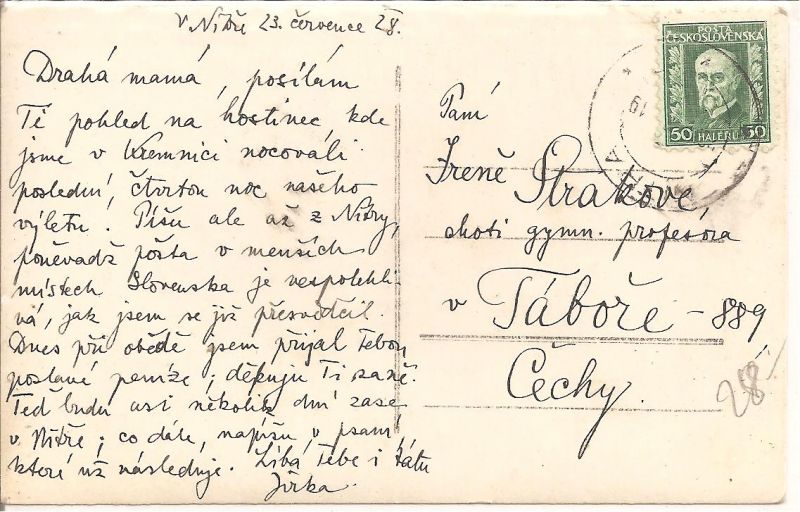 V Nitře 23. července 28.
Drahá mamá, posílám
Ti pohled na hostinec, kde
jsme v Kremnici nocovali
poslední, čtvrtou noc našeho
výletu. Píšu ale až z Nitry,
poněvadž pošta v menších
místech Slovenska je nespolehli-
vá, jak jsem se již přesvědčil.
Dnes při obědě jsem přijal Tebou
poslané peníze; děkuju Ti za ně.
Teď budu asi několik dní zase
v Nitře; co dále, napíšu v psaní,
které už následuje. Líbá Tebe i tátu
Jirka.
POŠTA
ČESKOSLOVENSKÁ
50 HALÉŘŮ 50
Paní
Ireně Strakové,
choti gymn. profesora
v Táboře - 889
Čechy.
28